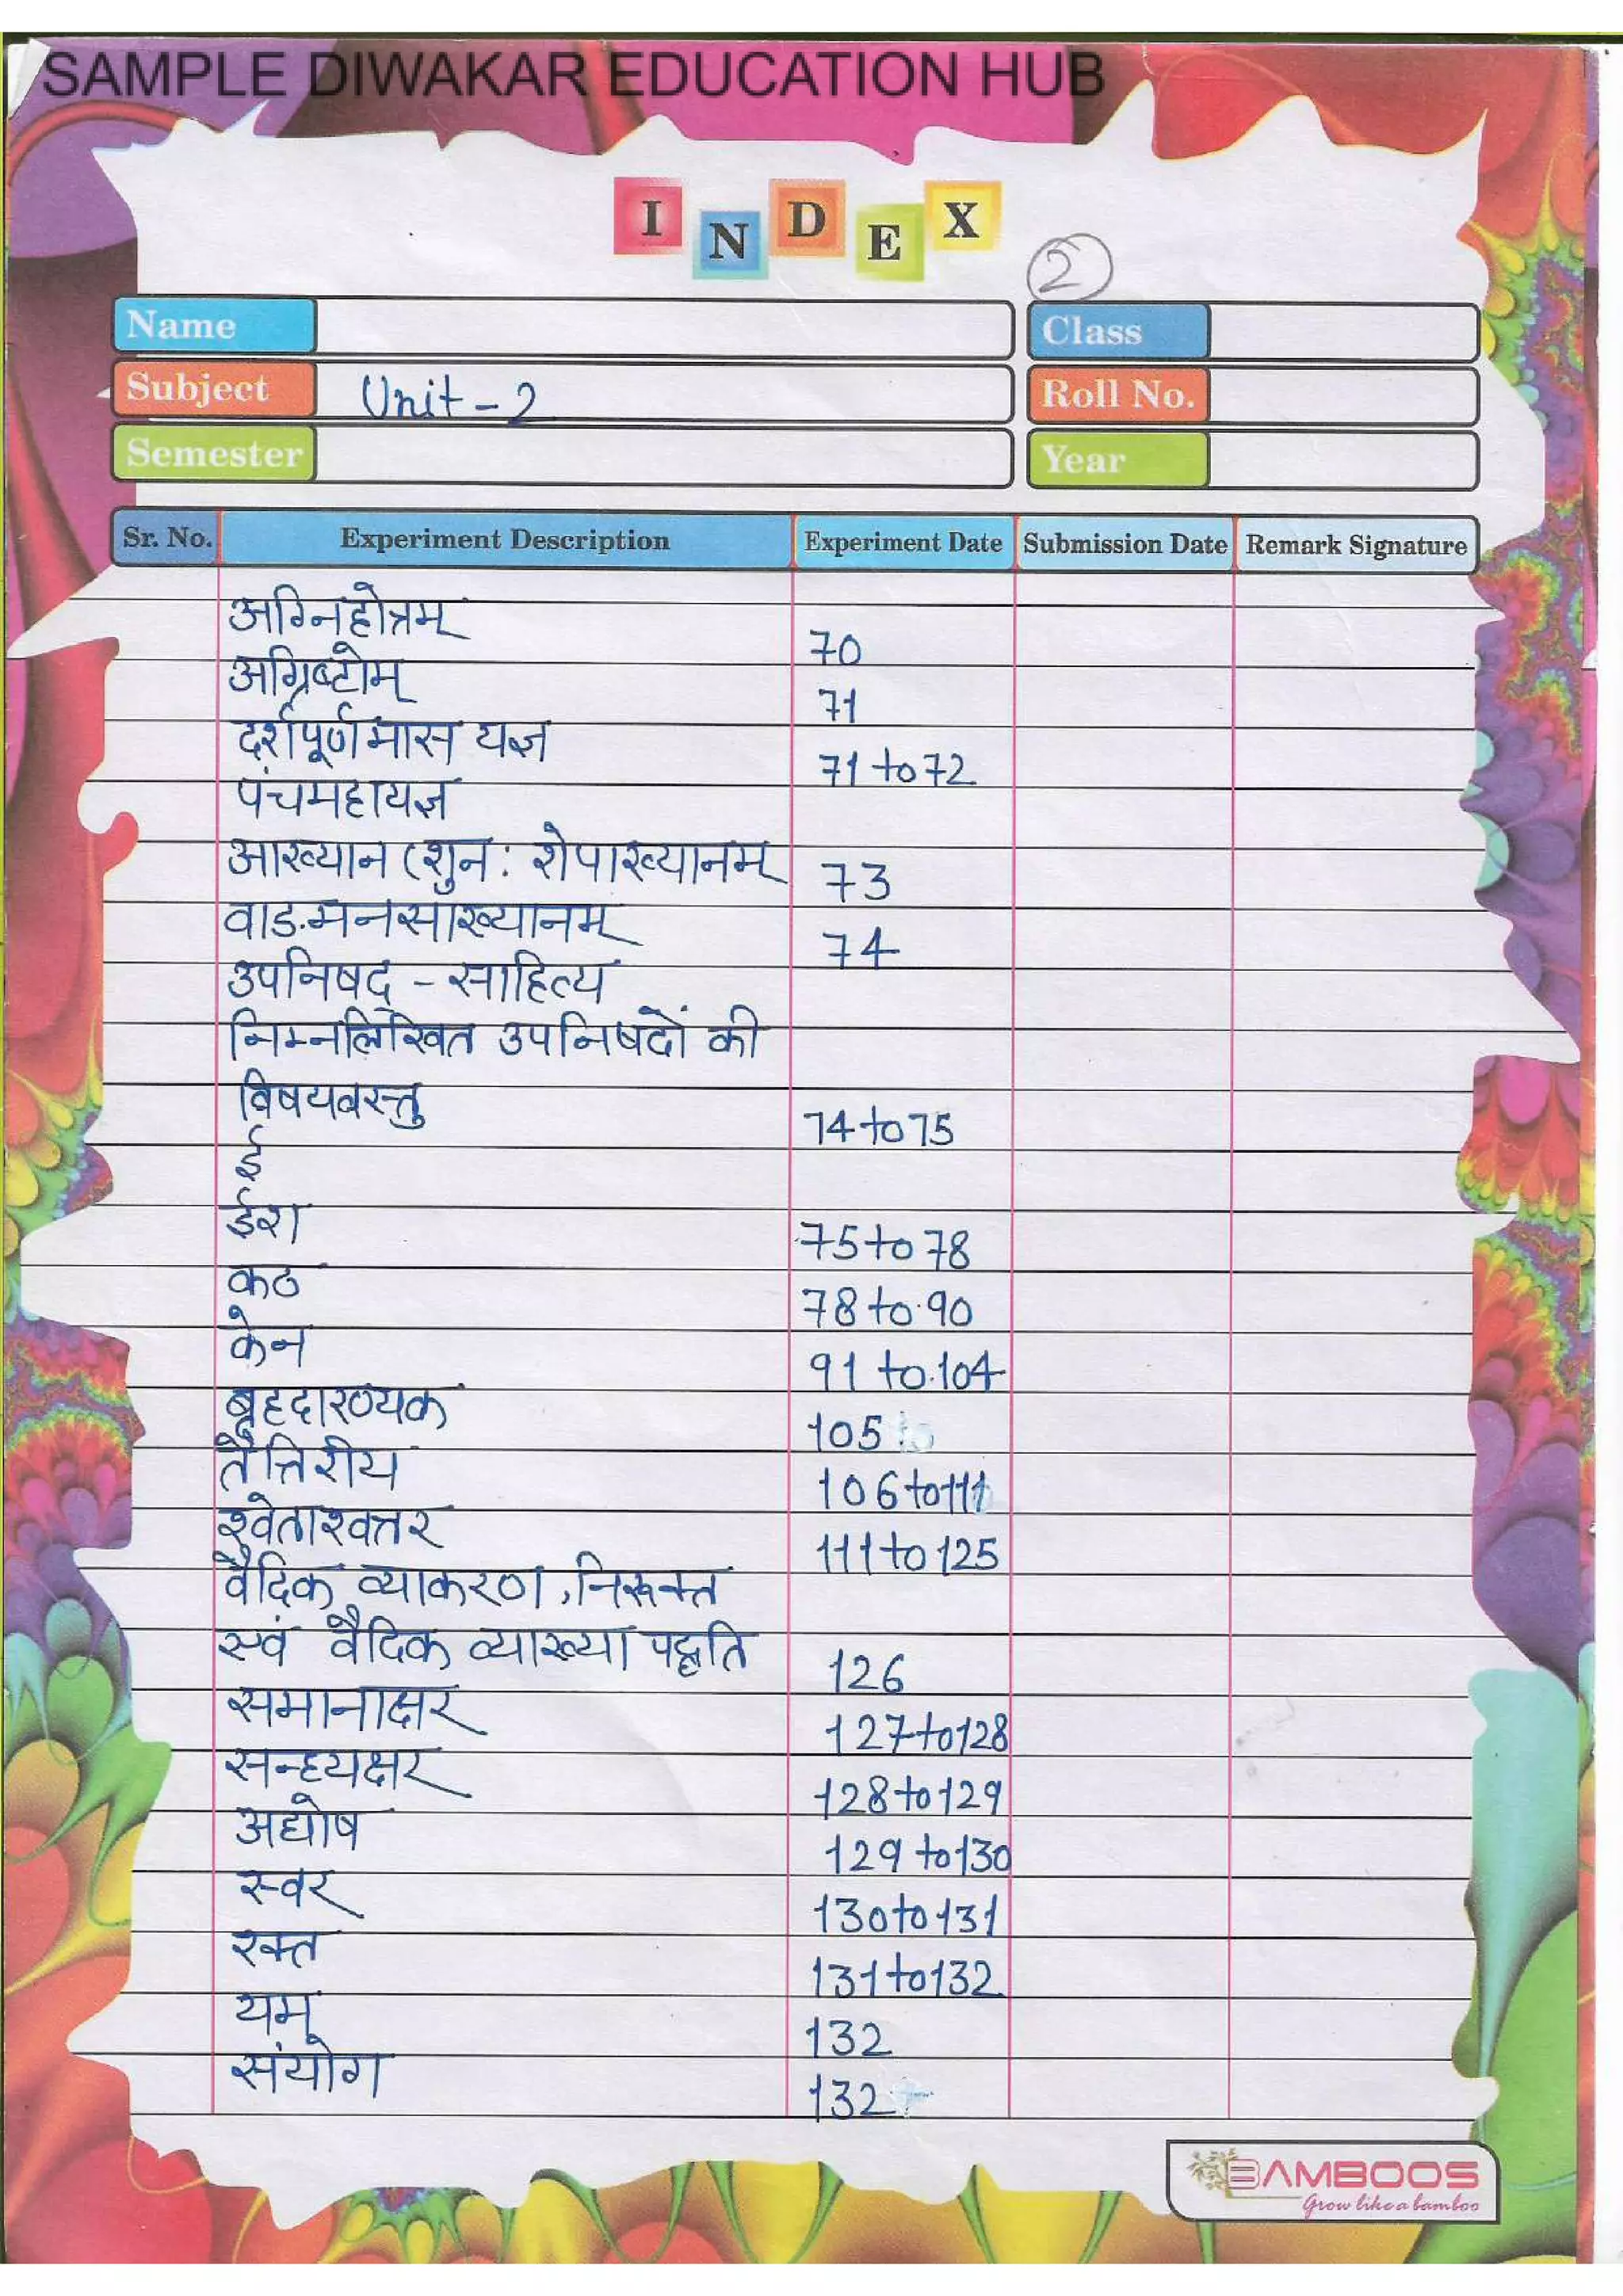 SAMPLE DIWAKAR EDUCATION HUB
INDEX
2
Name
Class
Subject Unit - 2
Roll No.
Semester
Year
Sr. No. Experiment Description Experiment Date Submission Date Remark Signature
अग्निहोत्रम् 70
अग्निष्टोम् 71
दर्शपूर्णमास यज्ञ 71 to 72
पंचमहायज्ञ
आख्यान (शुन: शेपाख्यानम् 73
वाड.मनसाख्यानम् 74
उपनिषद् - साहित्य
निम्नलिखित उपनिषदों की
विषयवस्तु 74 to 75
ई
ईश 75 to 78
कठ 78 to 90
केन 91 to 104
बृहदारण्यक 105
तैत्तिरीय 106 to 111
श्वेताश्वत्तर 111 to 125
वैदिक व्याकरण, निरूक्त
एवं वैदिक व्याख्या पद्धति 126
समानाक्षर 127 to 128
सन्ध्यक्षर 128 to 129
अघोष 129 to 130
स्वर 130 to 131
रक्त 131 to 132
यम् 132
संयोग 132
BAMBOOS
Grow like a bamboo